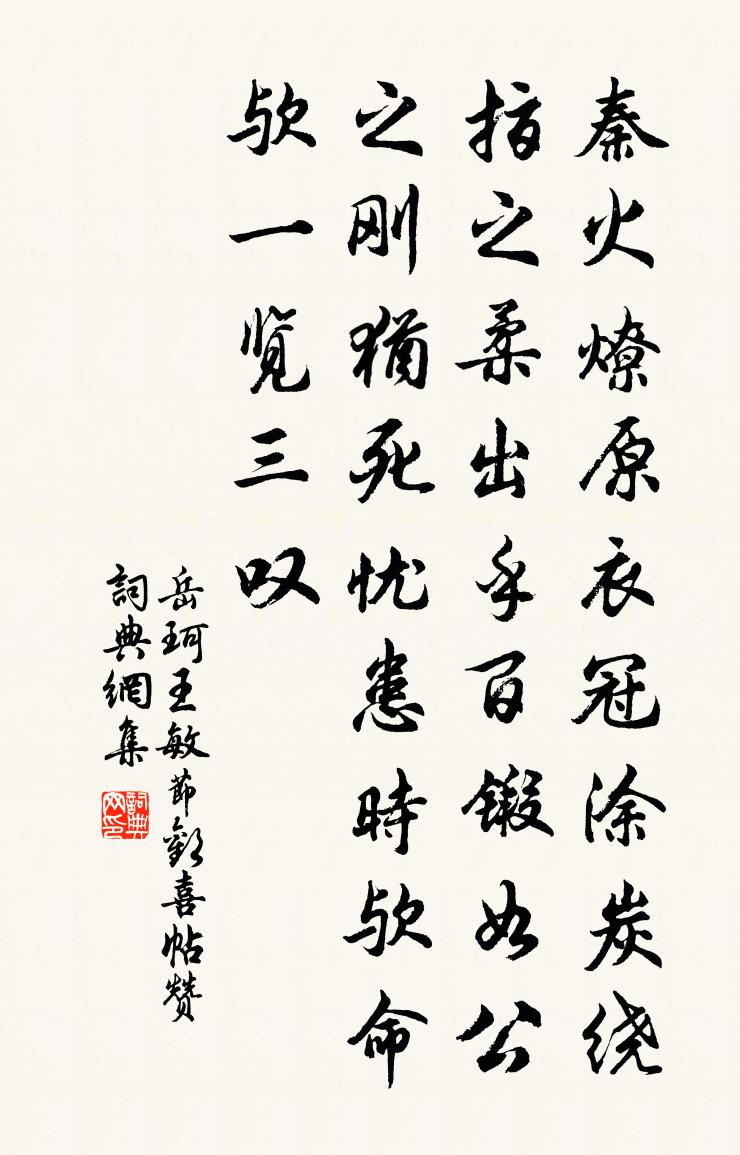 秦火燎原衣冠涂炭绕
指之柔出乎百锻如公
之刚犹死忧患時欤命
欤一览三叹
岳珂王敏節歡喜帖赞
詞典網集
詞典网印